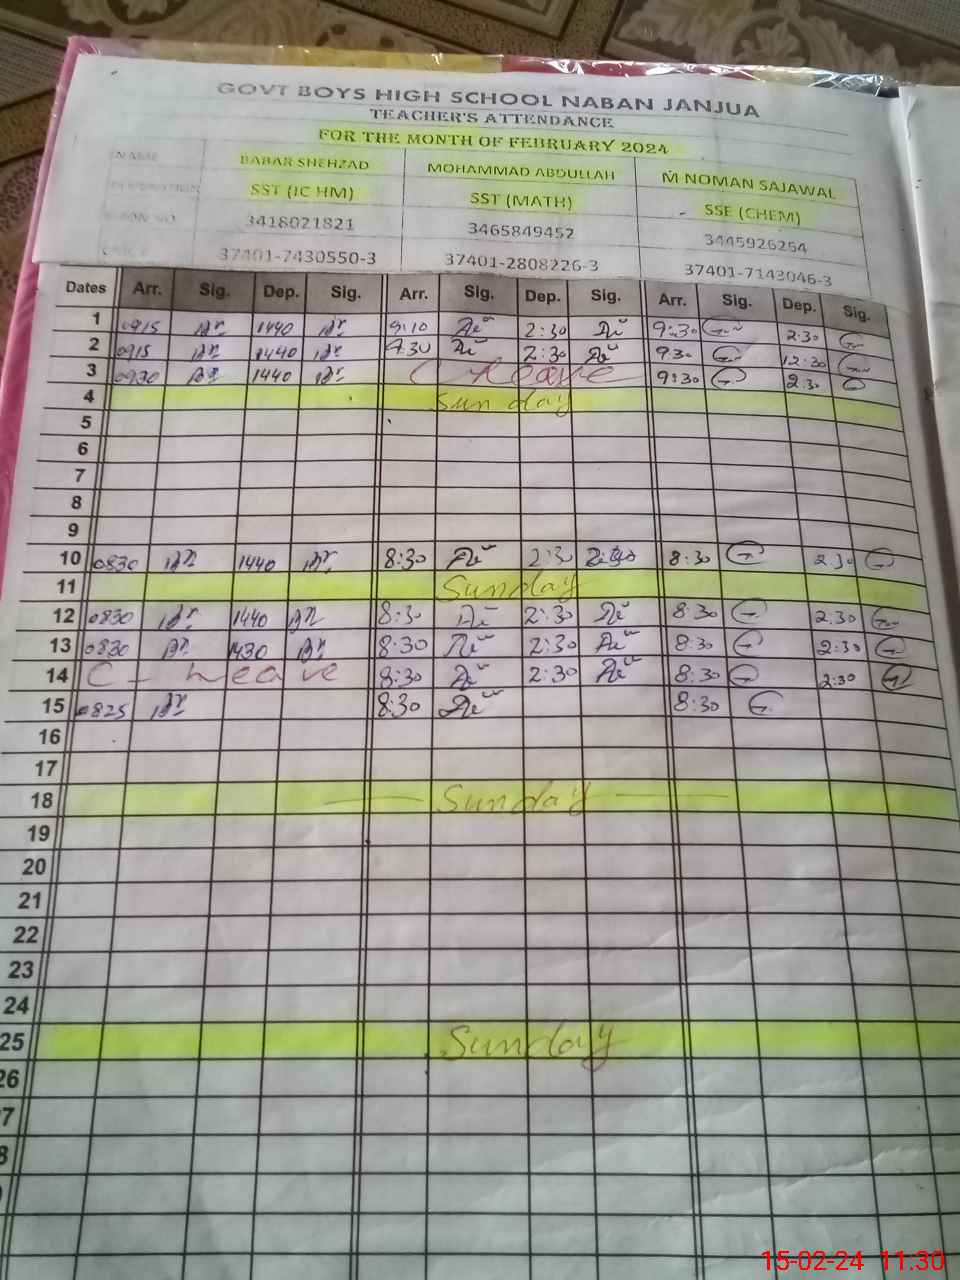 GOVT BOYS HIGH SCHOOL NABAN JANJUA
TEACHER'S ATTENDANCE
FOR THE MONTH OF FEBRUARY 2024
NAME BABAR SHEHZAD MOHAMMAD ABDULLAH M NOMAN SAJAWAL
SST (IC HM) SST (MATH) SSE (CHEM)
3418021821 3465849452 3445926264
37401-7430550-3 37401-2808226-3 37401-7143046-3
Dates Arr. Sig. Dep. Sig. Arr. Sig. Dep. Sig. Arr. Sig. Dep. Sig.
1 0915 1440 9:10 2:30 9:30 2:30
2 0915 1440 9.30 2:30 930 12:30
3 0930 1440 C leave 9:30 2:30
4 Sunday
5
6
7
8
9
10 0830 1440 8:30 2:30 8:30 2:30
11 Sunday
12 0830 1440 8:30 2:30 8:30 2:30
13 0830 1430 8:30 2:30 8:30 2:30
14 C - Leave 8:30 2:30 8:30 2:30
15 0825 8:30 8:30
16
17
18 Sunday
19
20
21
22
23
24
25 Sunday
26
7
8
15-02-24 11:30